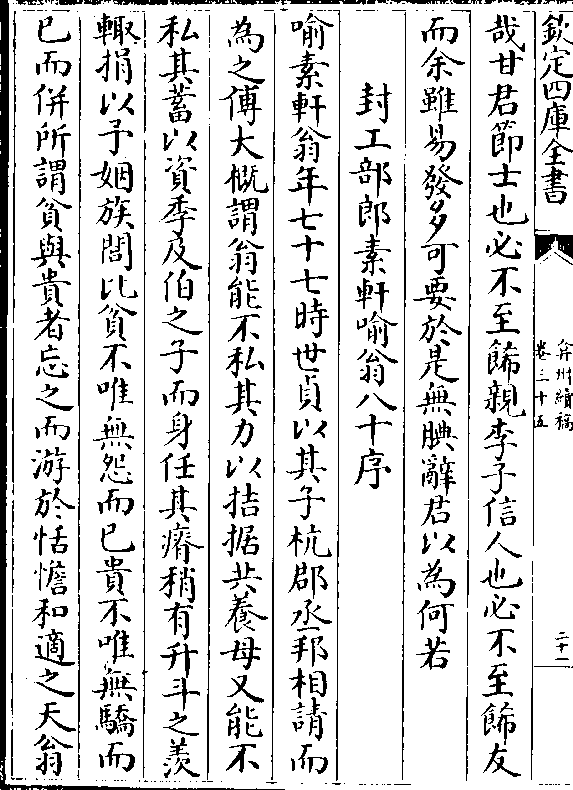 欽定四庫全書
弇州續稿
卷三十五
二十一
哉甘君節士也必不至餙親李子信人也必不至餙友
而余雖易發多可要於是無腆辭君以為何若
封工部郎素軒喻翁八十序
喻素軒翁年七十七時世貞以其子杭郡丞邦相請而
為之傳大概謂翁能不私其力以拮据共養母又能不
私其蓄以資季及伯之子而身任其瘠稍有升斗之羨
輙捐以予姻族閭比貧不唯無怨而已貴不唯無驕而
已而併所謂貧與貴者忘之而游於恬憺和適之天翁